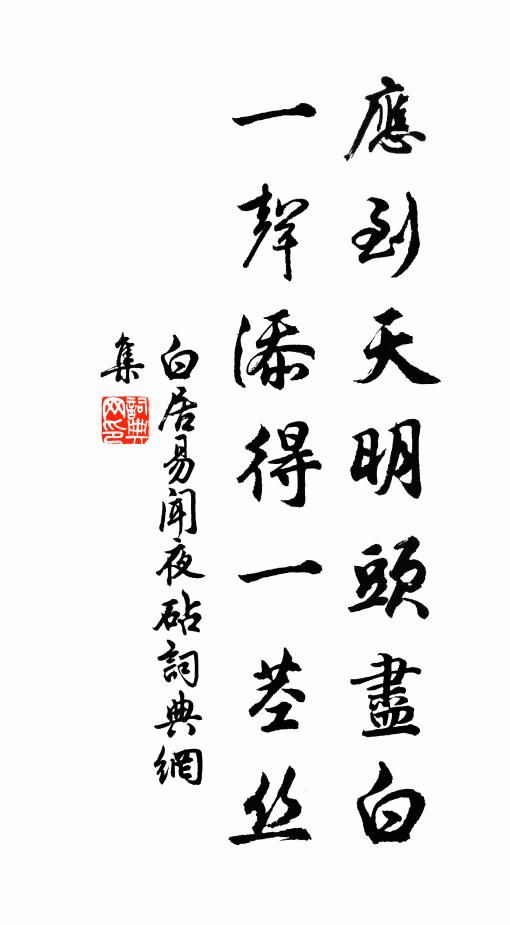 應到天明頭盡白
一聲添得一莖丝
白居易聞夜砧詞典網
集
詞典网印